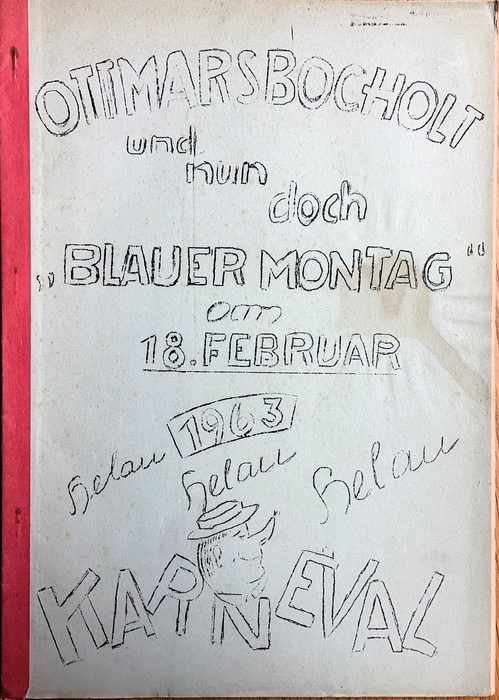 OTTMARSBOCHOLT
und
nun
doch
„BLAUER MONTAG“
am
18. FEBRUAR
1963
Helau Helau Helau
KARNEVAL